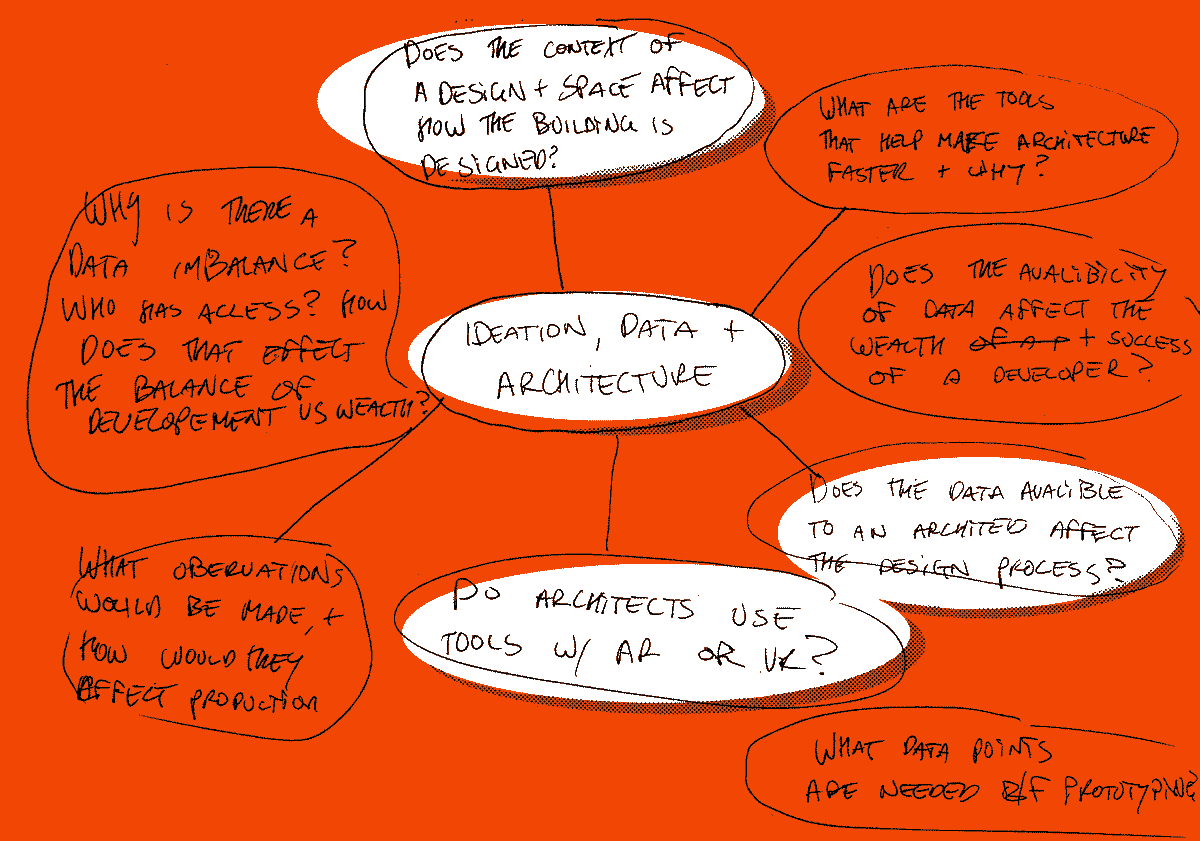 DOES THE CONTEXT OF
A DESIGN + SPACE AFFECT
HOW THE BUILDING IS
DESIGNED?
WHAT ARE THE TOOLS
THAT HELP MAKE ARCHITECTURE
FASTER + WHY?
WHY IS THERE A
DATA IMBALANCE?
WHO HAS ACCESS? HOW
DOES THAT EFFECT
THE BALANCE OF
DEVELOPEMENT VS WEALTH?
IDEATION, DATA +
ARCHITECTURE
DOES THE AVALIBICITY
OF DATA AFFECT THE
WEALTH OF A P + SUCCESS
OF A DEVELOPER?
DOES THE DATA AVALIBLE
TO AN ARCHITED AFFECT
THE DESIGN PROCESS?
WHAT OBERVATIONS
WOULD BE MADE, +
HOW WOULD THEY
AFFECT PRODUCTION
DO ARCHITECTS USE
TOOLS W/ AR OR VR?
WHAT DATA POINTS
ARE NEEDED B/F PROTOTYPING?